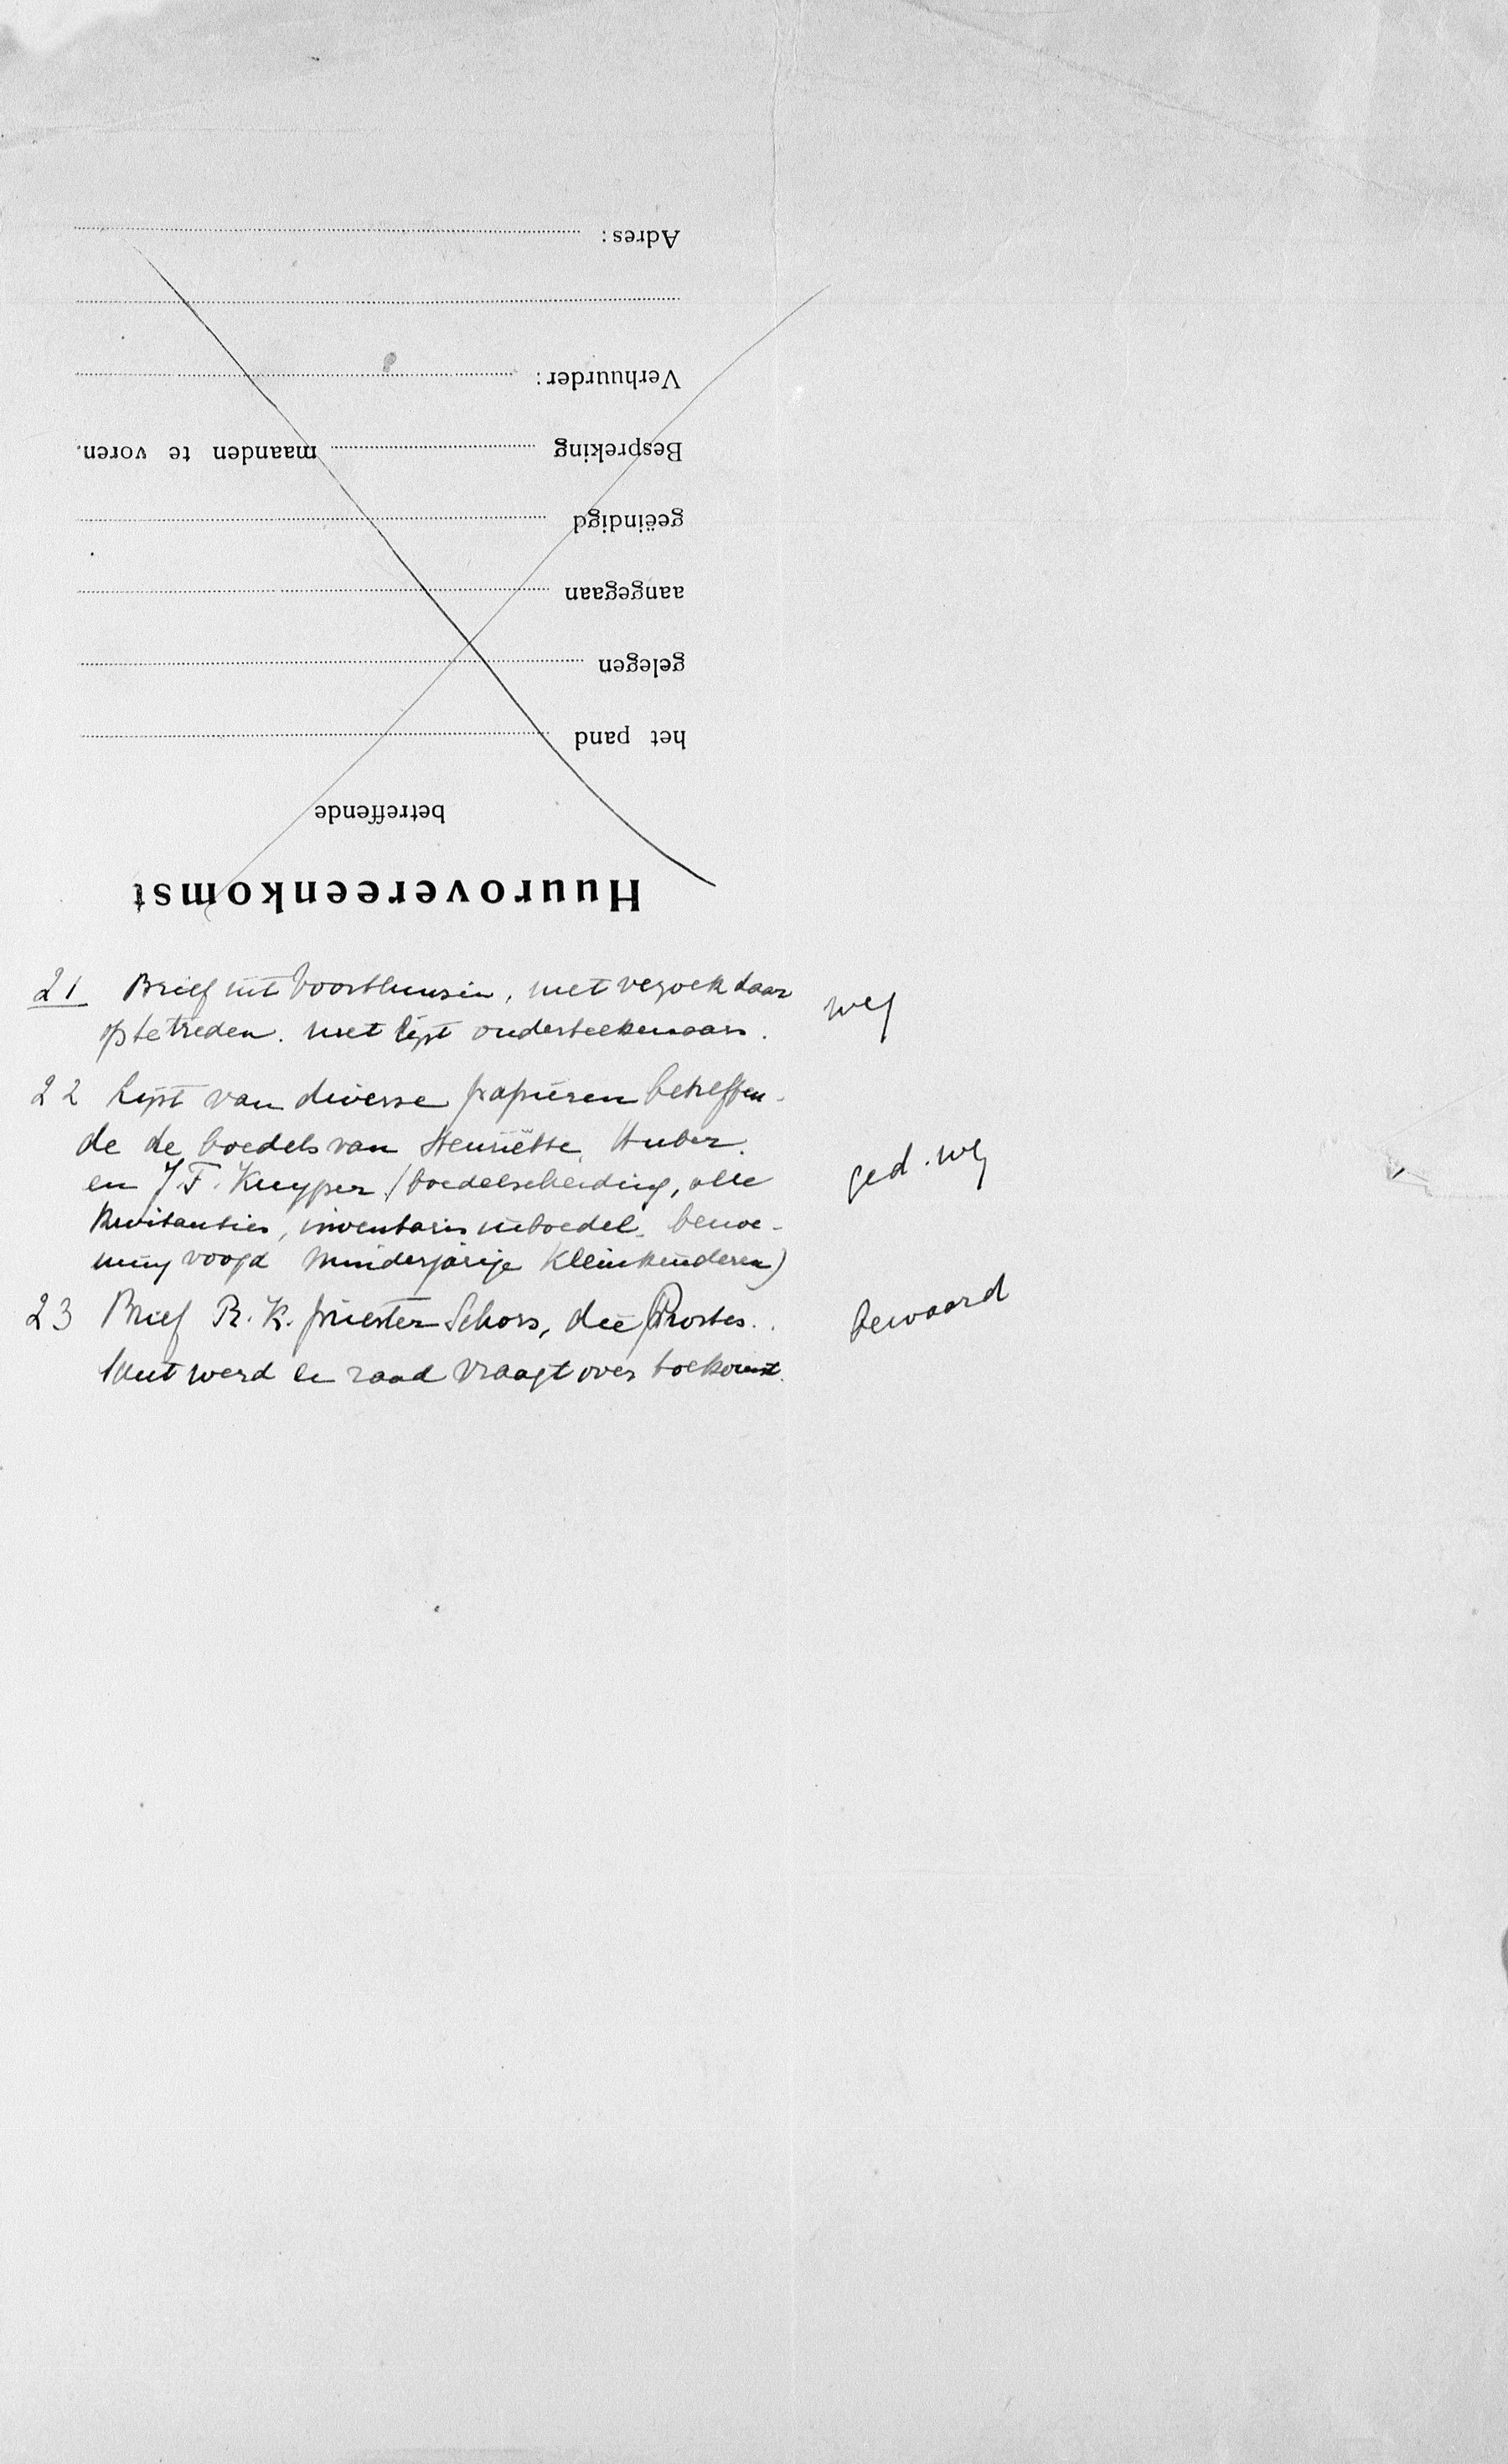 Huurovereenkomst
betreffende
het pand
gelegen
aangegaan
geëindigd
Bespreking maanden te voren.
Verhuurder:
Adres:
21 Brief uit Voorthuizen, met verzoek daar weg
op te treden. met lijst onderteekenaars.
22 Lijst van diverse papieren betreffen-
de de boedels van Henriëtte Huber.
en J.F. Kuyper (boedelscheiding, alle ged. weg
kwitanties, inventaris inboedel. benoe-
ming voogd minderjarige kleinkinderen)
23 Brief R.K. priester Schors, die Protes. bewaard
tant werd en raad vraagt over toekomst.